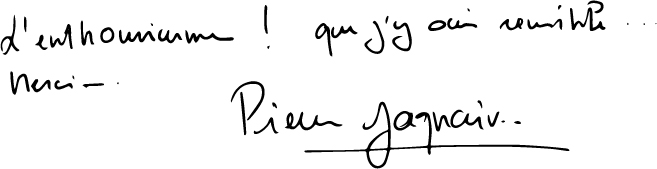 d'enthousiasme ! que j'y suis sensible ...
Merci –.
Pierre Gagnaire..